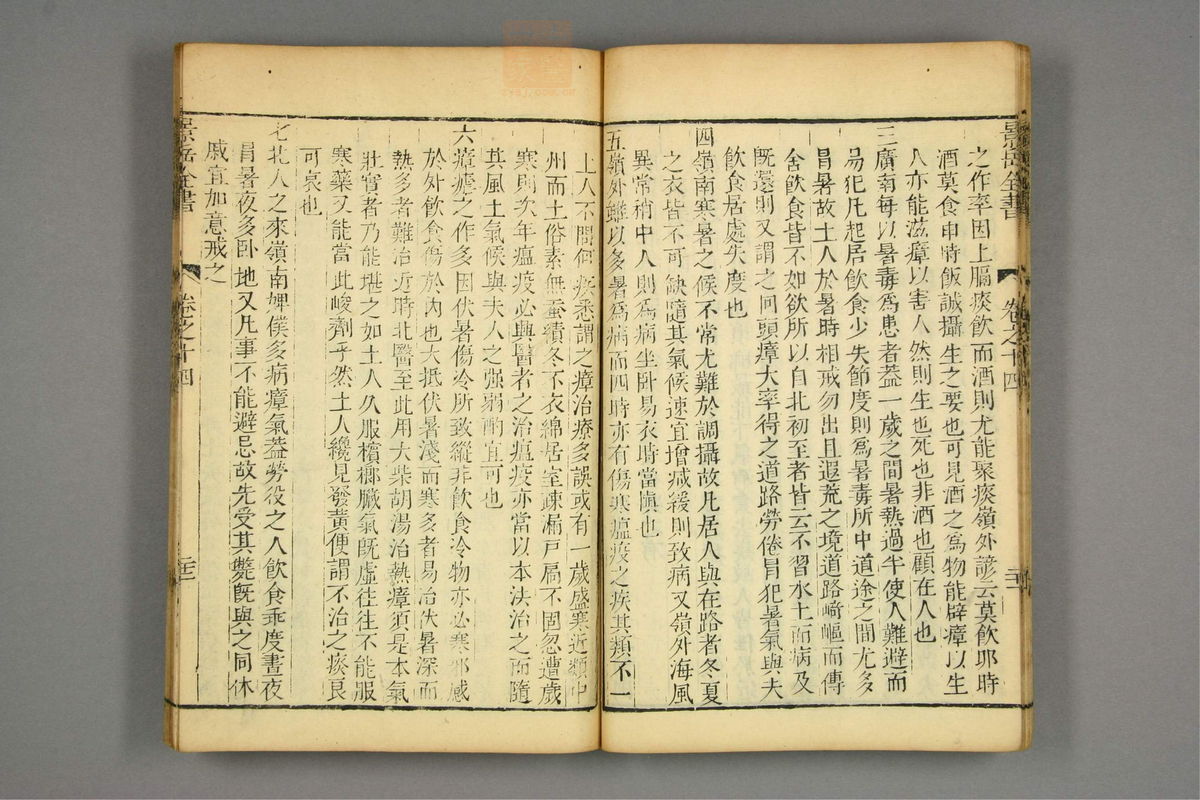 景岳全書
卷之十四
之作率因上膈痰飲而酒則尤能聚痰嶺外諺云莫飲耶時
酒莫食申時飯誠攝生之要也可見酒之爲物能辟瘴以生
人亦能滋瘴以害人然則生也死也非酒也顧在人也
三廣南每以暑毒爲患者葢一歲之間暑熱過半使人難避而
易犯凡起居飲食少失節度則爲暑毒所中道途之間尤多
冒暑故土人於暑時相戒勿出且遐荒之境道路崎嶇而傳
舍飲食皆不如欲所以自北初至者皆云不習水土而病及
旣還則又謂之回頭瘴大率得之道路勞倦冒犯暑氣與夫
飲食居處失度也
四嶺南寒暑之候不常尤難於調攝故凡居人與在路者冬夏
之衣皆不可缺隨其氣候速宜增减緩則致病又嶺外海風
異常稍中人則爲病坐卧易衣時當愼也
五嶺外雖以多暑爲病而四時亦有傷寒瘟疫之疾其類不一
土人不問何疾悉謂之瘴治療多誤或有一歲盛寒近類中
州而土俗素無蚕績冬不衣綿居室疎漏戸扃不固忽遭歲
寒則次年瘟疫必興醫者之治瘟疫亦當以本法治之而隨
其風土氣候與夫人之强弱酌宜可也
六瘴瘧之作多因伏暑傷冷所致縱非飲食冷物亦必寒邪感
於外飲食傷於內也大抵伏暑淺而寒多者易治伏暑深而
熱多者難治近時北醫至此用大柴胡湯治熱瘴須是本氣
壯實者乃能堪之如土人久服檳榔臟氣旣虛往往不能服
寒藥又能當此峻劑乎然土人纔見發黃便謂不治之痰良
可哀也
七北人之來嶺南婢僕多病瘴氣葢勞役之人飲食乖度晝夜
冒暑夜多卧地又凡事不能避忌故先受其斃旣與之同休
戚宜加意戒之
景岳全書
卷之十四